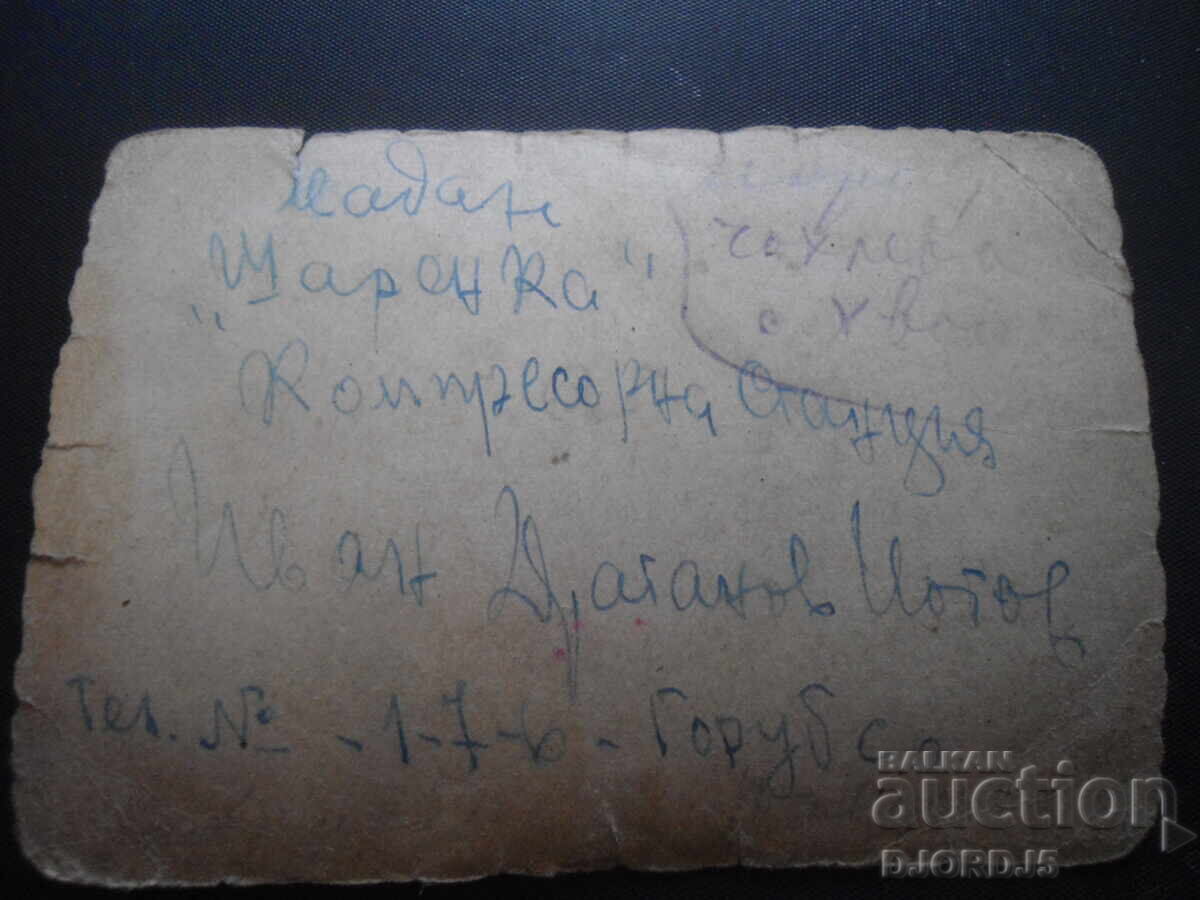 Мадан
"Шаренка"
Компресорна Станция
Иван Драганов Йотов
Тел. № - 1-7-6 - Горубсо
BALKAN
auction
DJORDJ5